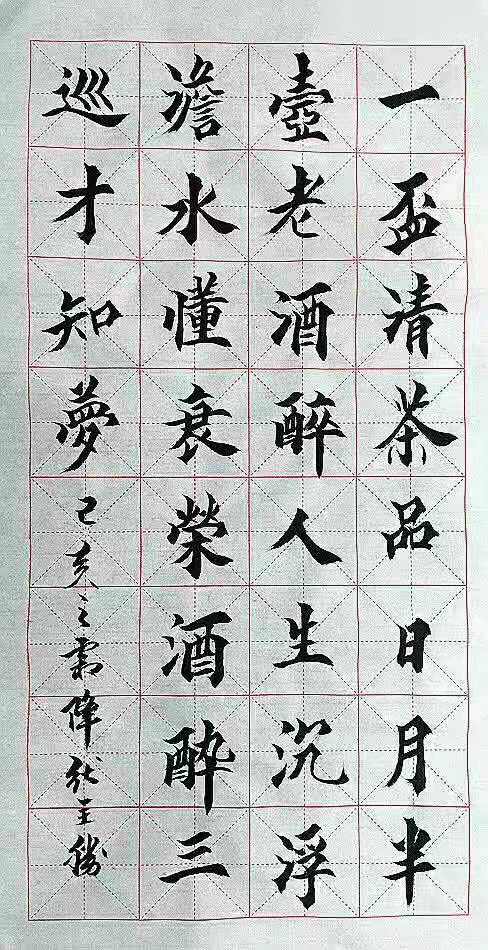 一盃清茶品日月半
壺老酒醉人生沉浮
澹水懂衰榮酒酔三
巡才知夢
己亥之霜降王勝